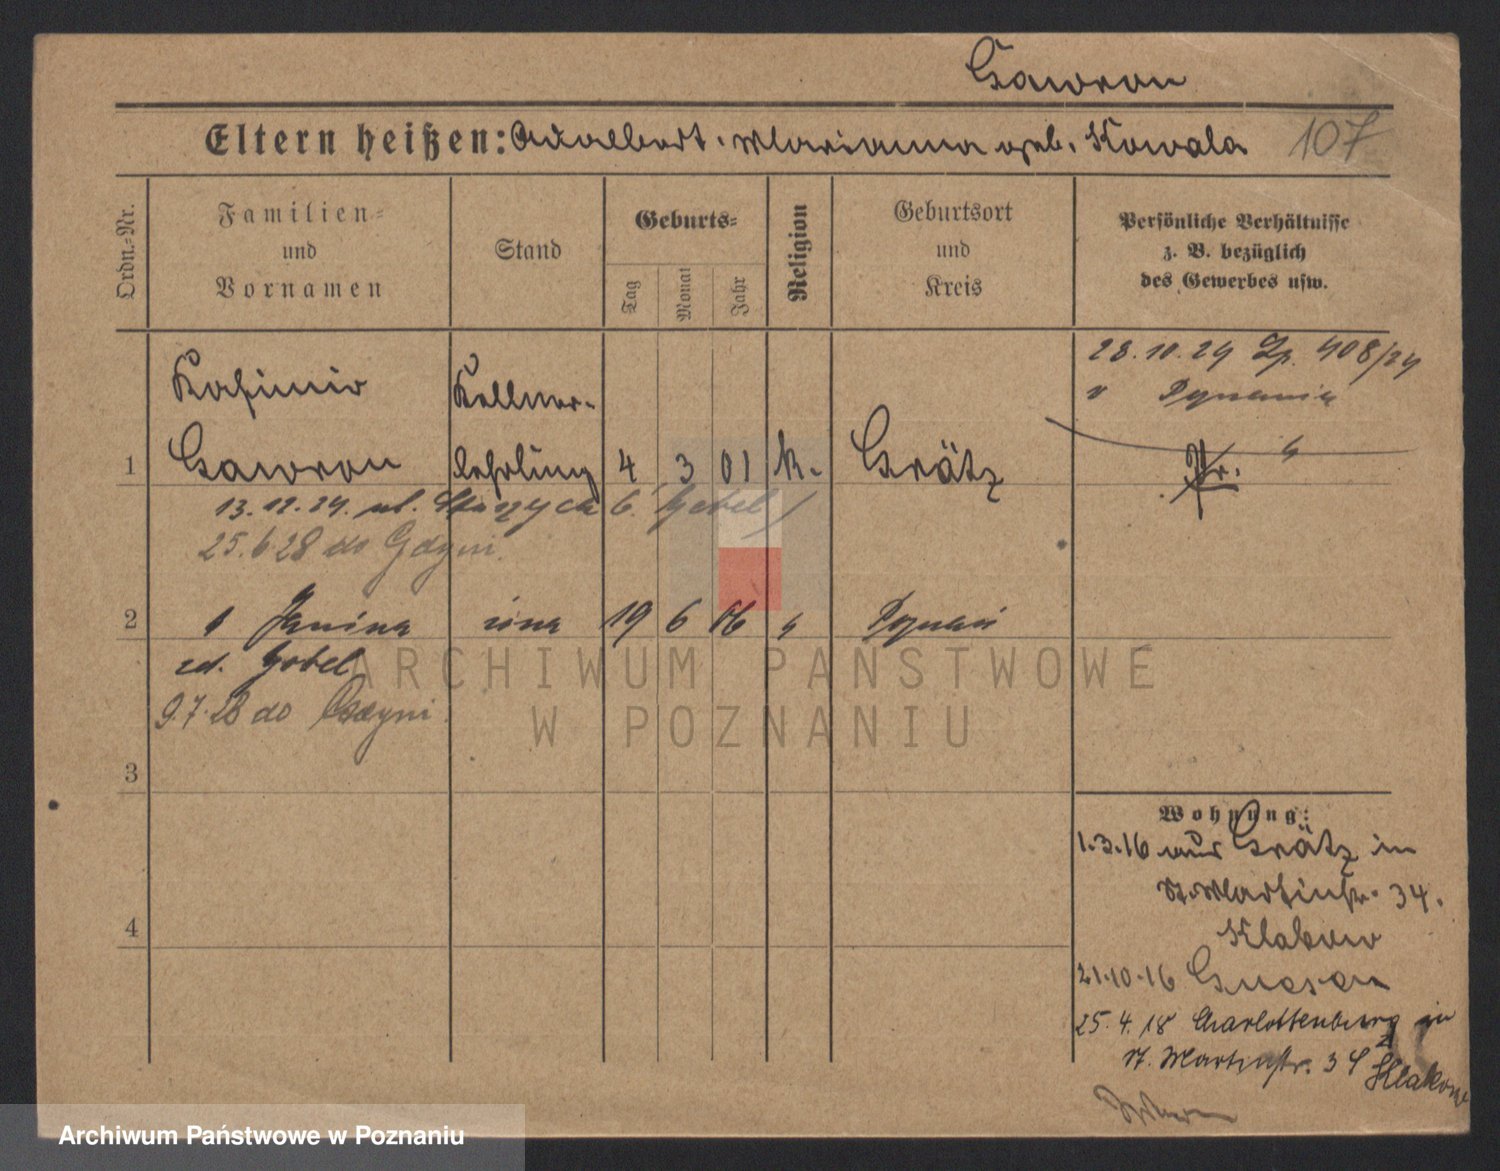 Gawron
Eltern heißen: Adalbert. Marianna geb. Kowala 107
Ordn.-Nr.
Familien-
und
Vornamen
Stand
Geburts-
Tag
Monat
Jahr
Religion
Geburtsort
und
Kreis
Persönliche Verhältnisse
z. B. bezüglich
des Gewerbes usw.
23.10.24 Zp. 408/24
v Poznania
Kasimir Kellner-
1 Gawron lehrling 4 3 01 k. Grätz Pr.
13.12.24. ul. 6 Gebel
25.6 28 do Gdyni.
2 Janina żona 19 6 06 Poznań
zd. Gebel
9.7.28 do Gdyni.
3
4
Wohnung:
1.3.16 aus Grätz in
St. Martinstr. 34.
21.10.16 Gnesen
25.4.18 Charlottenburg in
St. Martinstr. 34
ARCHIWUM PAŃSTWOWE
W POZNANIU
Archiwum Państwowe w Poznaniu